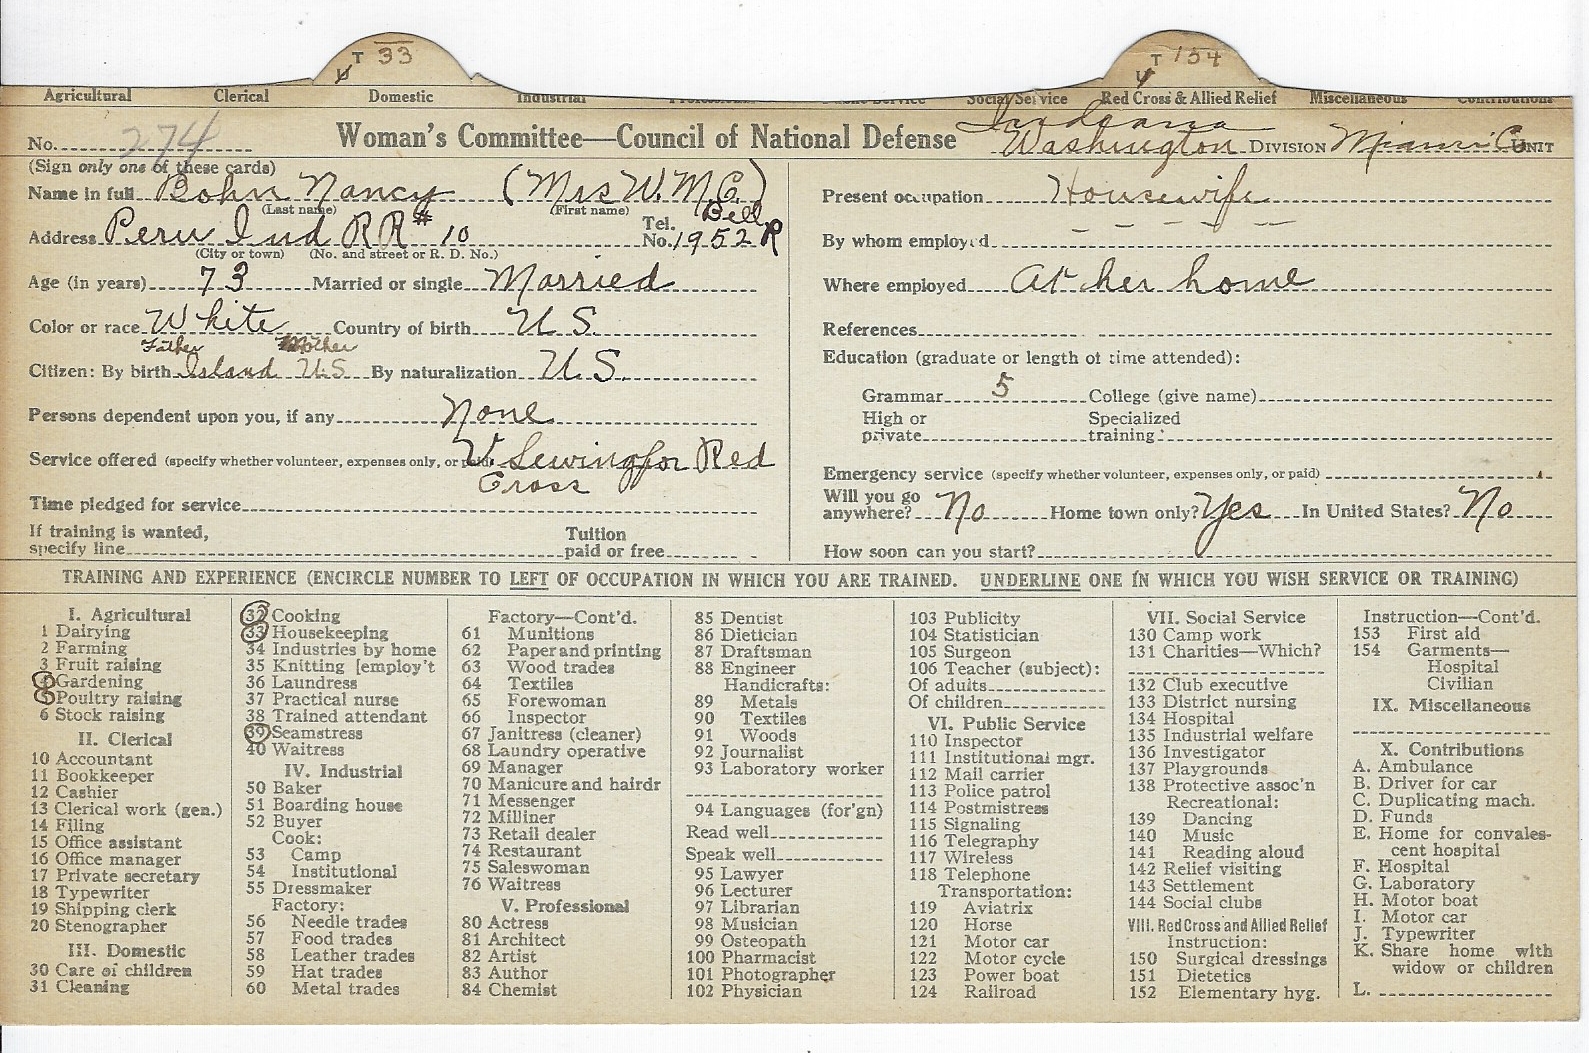 T 33
U
T 154
U
Agricultural Clerical Domestic Industrial Professional Public Service Social Service Red Cross & Allied Relief Miscellaneous Contributions
No. 274 Woman's Committee—Council of National Defense Indiana Washington DIVISION Miami Co UNIT
(Sign only one of these cards)
Name in full Bohn Nancy (Mrs W. M. C.)
(Last name) (First name)
Address Peru Ind RR# 10 Tel. No. Bell 1952 R
(City or town) (No. and street or R. D. No.)
Age (in years) 73 Married or single Married
Color or race White Country of birth U S.
Father Mother
Citizen: By birth Island U.S By naturalization U.S.
Persons dependent upon you, if any None
Service offered (specify whether volunteer, expenses only, or paid) V. Sewing for Red
Cross
Time pledged for service
If training is wanted, specify line Tuition paid or free
Present occupation Housewife
By whom employed
Where employed At her home
References
Education (graduate or length of time attended):
Grammar 5 College (give name)
High or private Specialized training:
Emergency service (specify whether volunteer, expenses only, or paid)
Will you go anywhere? No Home town only? Yes In United States? No
How soon can you start?
TRAINING AND EXPERIENCE (ENCIRCLE NUMBER TO LEFT OF OCCUPATION IN WHICH YOU ARE TRAINED. UNDERLINE ONE IN WHICH YOU WISH SERVICE OR TRAINING)
I. Agricultural
1 Dairying
2 Farming
3 Fruit raising
4 Gardening
5 Poultry raising
6 Stock raising
II. Clerical
10 Accountant
11 Bookkeeper
12 Cashier
13 Clerical work (gen.)
14 Filing
15 Office assistant
16 Office manager
17 Private secretary
18 Typewriter
19 Shipping clerk
20 Stenographer
III. Domestic
30 Care of children
31 Cleaning
32 Cooking
33 Housekeeping
34 Industries by home
35 Knitting [employ't
36 Laundress
37 Practical nurse
38 Trained attendant
39 Seamstress
40 Waitress
IV. Industrial
50 Baker
51 Boarding house
52 Buyer
Cook:
53 Camp
54 Institutional
55 Dressmaker
Factory:
56 Needle trades
57 Food trades
58 Leather trades
59 Hat trades
60 Metal trades
Factory—Cont'd.
61 Munitions
62 Paper and printing
63 Wood trades
64 Textiles
65 Forewoman
66 Inspector
67 Janitress (cleaner)
68 Laundry operative
69 Manager
70 Manicure and hairdr
71 Messenger
72 Milliner
73 Retail dealer
74 Restaurant
75 Saleswoman
76 Waitress
V. Professional
80 Actress
81 Architect
82 Artist
83 Author
84 Chemist
85 Dentist
86 Dietician
87 Draftsman
88 Engineer
Handicrafts:
89 Metals
90 Textiles
91 Woods
92 Journalist
93 Laboratory worker
94 Languages (for'gn)
Read well
Speak well
95 Lawyer
96 Lecturer
97 Librarian
98 Musician
99 Osteopath
100 Pharmacist
101 Photographer
102 Physician
103 Publicity
104 Statistician
105 Surgeon
106 Teacher (subject):
Of adults
Of children
VI. Public Service
110 Inspector
111 Institutional mgr.
112 Mail carrier
113 Police patrol
114 Postmistress
115 Signaling
116 Telegraphy
117 Wireless
118 Telephone
Transportation:
119 Aviatrix
120 Horse
121 Motor car
122 Motor cycle
123 Power boat
124 Railroad
VII. Social Service
130 Camp work
131 Charities—Which?
132 Club executive
133 District nursing
134 Hospital
135 Industrial welfare
136 Investigator
137 Playgrounds
138 Protective assoc'n
Recreational:
139 Dancing
140 Music
141 Reading aloud
142 Relief visiting
143 Settlement
144 Social clubs
VIII. Red Cross and Allied Relief
Instruction:
150 Surgical dressings
151 Dietetics
152 Elementary hyg.
Instruction—Cont'd.
153 First aid
154 Garments—
Hospital
Civilian
IX. Miscellaneous
X. Contributions
A. Ambulance
B. Driver for car
C. Duplicating mach.
D. Funds
E. Home for convales-
cent hospital
F. Hospital
G. Laboratory
H. Motor boat
I. Motor car
J. Typewriter
K. Share home with
widow or children
L.